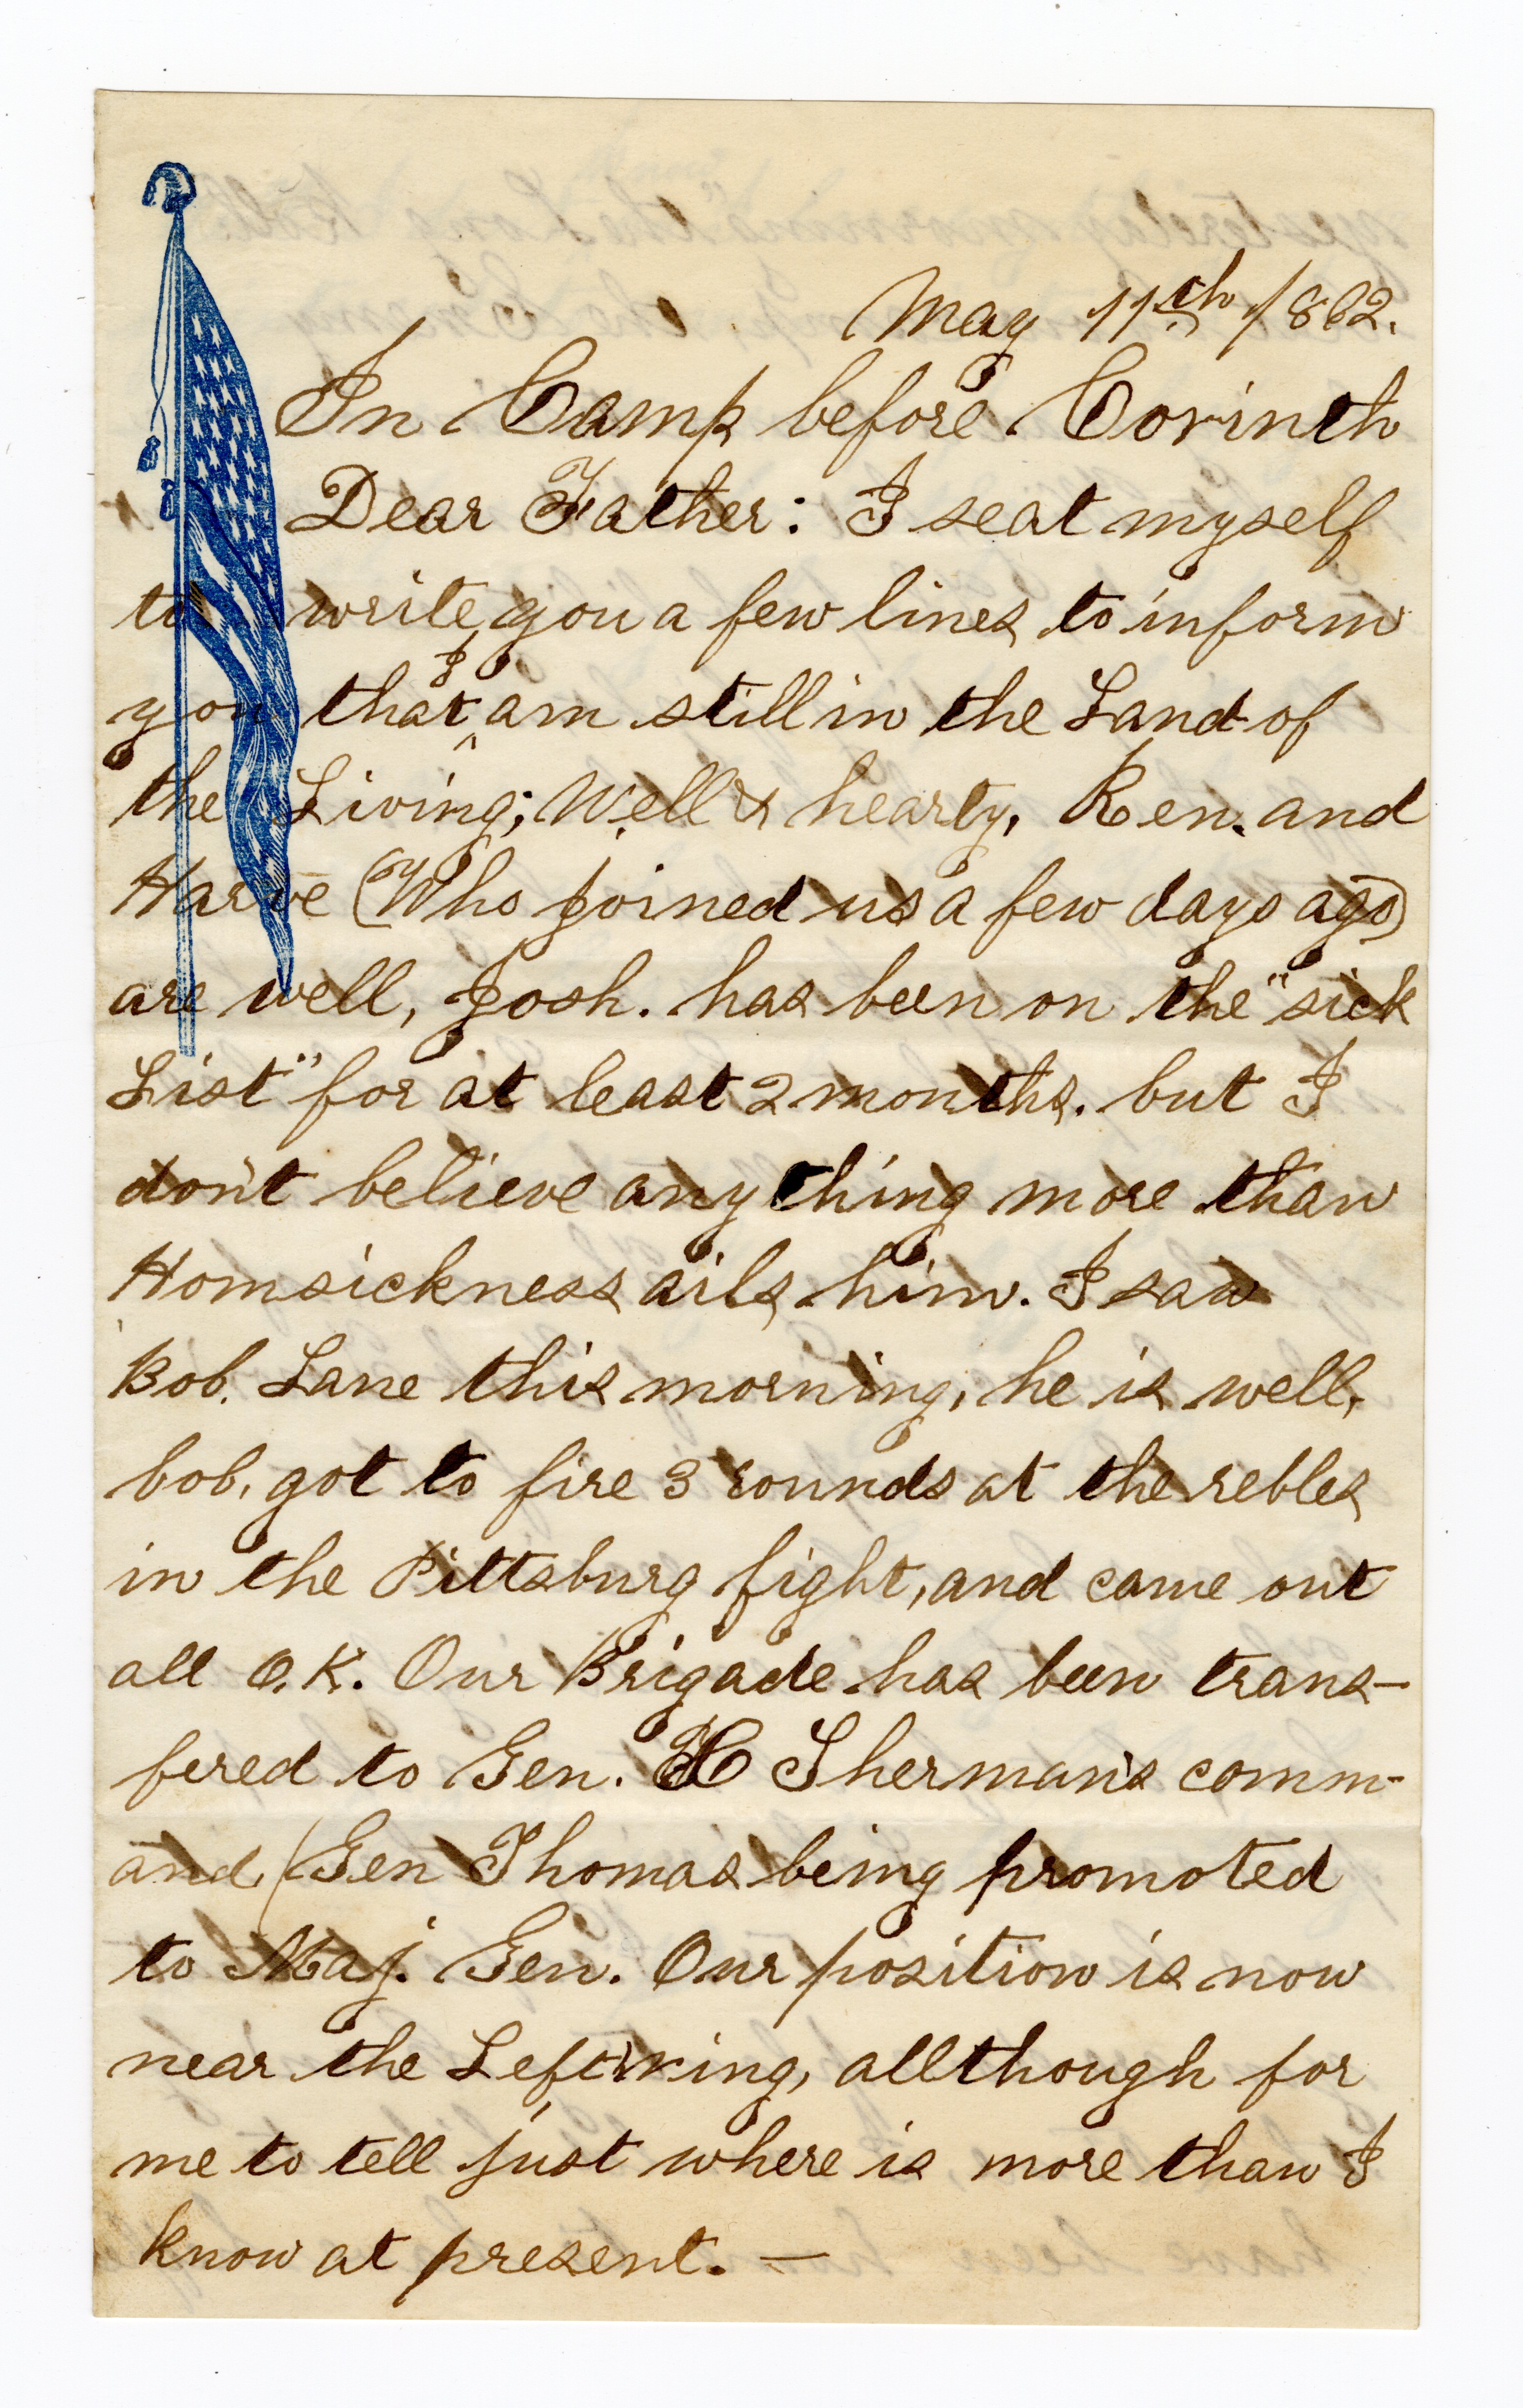 May 11th /862.
In Camp before Corinth
Dear Father: I seat myself
to write you a few lines to inform
you that I am still in the Land of
the Living; Well & hearty, Ren. and
Harve (Who joined us a few days ago)
are well, Josh. has been on the "sick
List" for at least 2 months. but I
don't believe any thing more than
Homsickness ails him. I saw
Bob. Lane this morning, he is well,
bob, got to fire 3 rounds at the rebles
in the Pittsburg fight, and came out
all O.K. Our Brigade has been trans-
fered to Gen. Sherman's comm-
and (Gen Thomas being promoted
to Maj. Gen. Our position is now
near the Left wing, allthough for
me to tell just where is more than I
know at present. —